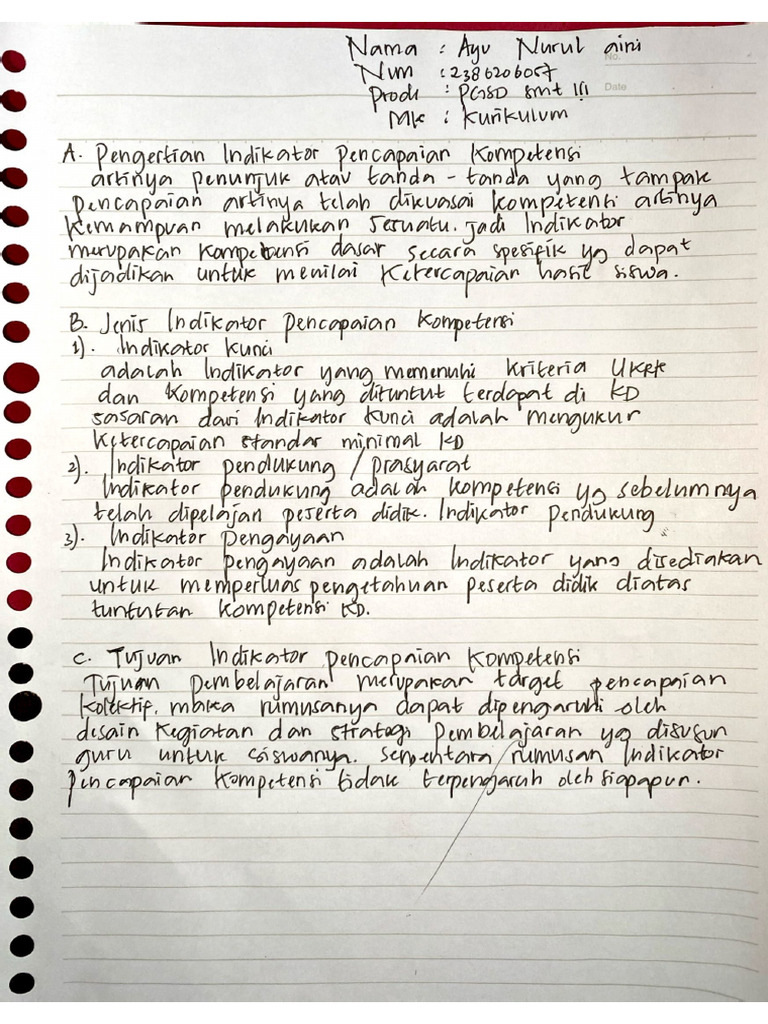 Nama : Ayu Nurul aini
No.
Nim : 2386206057
Prodi : PGSD smt III
Date
Mk : Kurikulum
A. Pengertian Indikator Pencapaian Kompetensi
artinya penunjuk atau tanda-tanda yang tampak
pencapaian artinya telah dikuasai kompetensi artinya
kemampuan melakukan sesuatu. jadi Indikator
merupakan kompetensi dasar secara spesifik yg dapat
dijadikan untuk menilai ketercapaian hasil siswa.
B. Jenis Indikator pencapaian kompetensi
1). Indikator kunci
adalah Indikator yang memenuhi kriteria UKRK
dan kompetensi yang dituntut terdapat di KD
sasaran dari Indikator kunci adalah mengukur
ketercapaian standar minimal KD
2). Indikator pendukung / prasyarat
Indikator pendukung adalah kompetensi yg sebelumnya
telah dipelajari peserta didik. Indikator pendukung
3). Indikator pengayaan
Indikator pengayaan adalah Indikator yang disediakan
untuk memperluas pengetahuan peserta didik diatas
tuntutan kompetensi KD.
C. Tujuan Indikator pencapaian kompetensi
Tujuan pembelajaran merupakan target pencapaian
kolektif, maka rumusanya dapat dipengaruhi oleh
desain kegiatan dan strategi pembelajaran yg disusun
guru untuk siswanya. Sementara rumusan Indikator
pencapaian kompetensi tidak terpengaruh oleh siapapun.